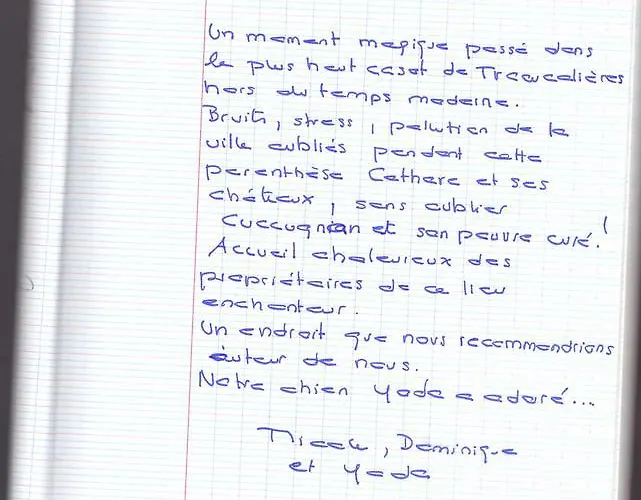 Un moment magique passé dans
le plus haut casot de Traucalières
hors du temps moderne.
Bruits, stress, pollution de la
ville oubliés pendant cette
parenthèse Cathare et ses
châteaux, sans oublier
Cuccugnan et son pauvre curé !
Accueil chaleureux des
propriétaires de ce lieu
enchanteur.
Un endroit que nous recommandrions
autour de nous.
Notre chien Yoda a adoré...
, Dominique
et Yoda